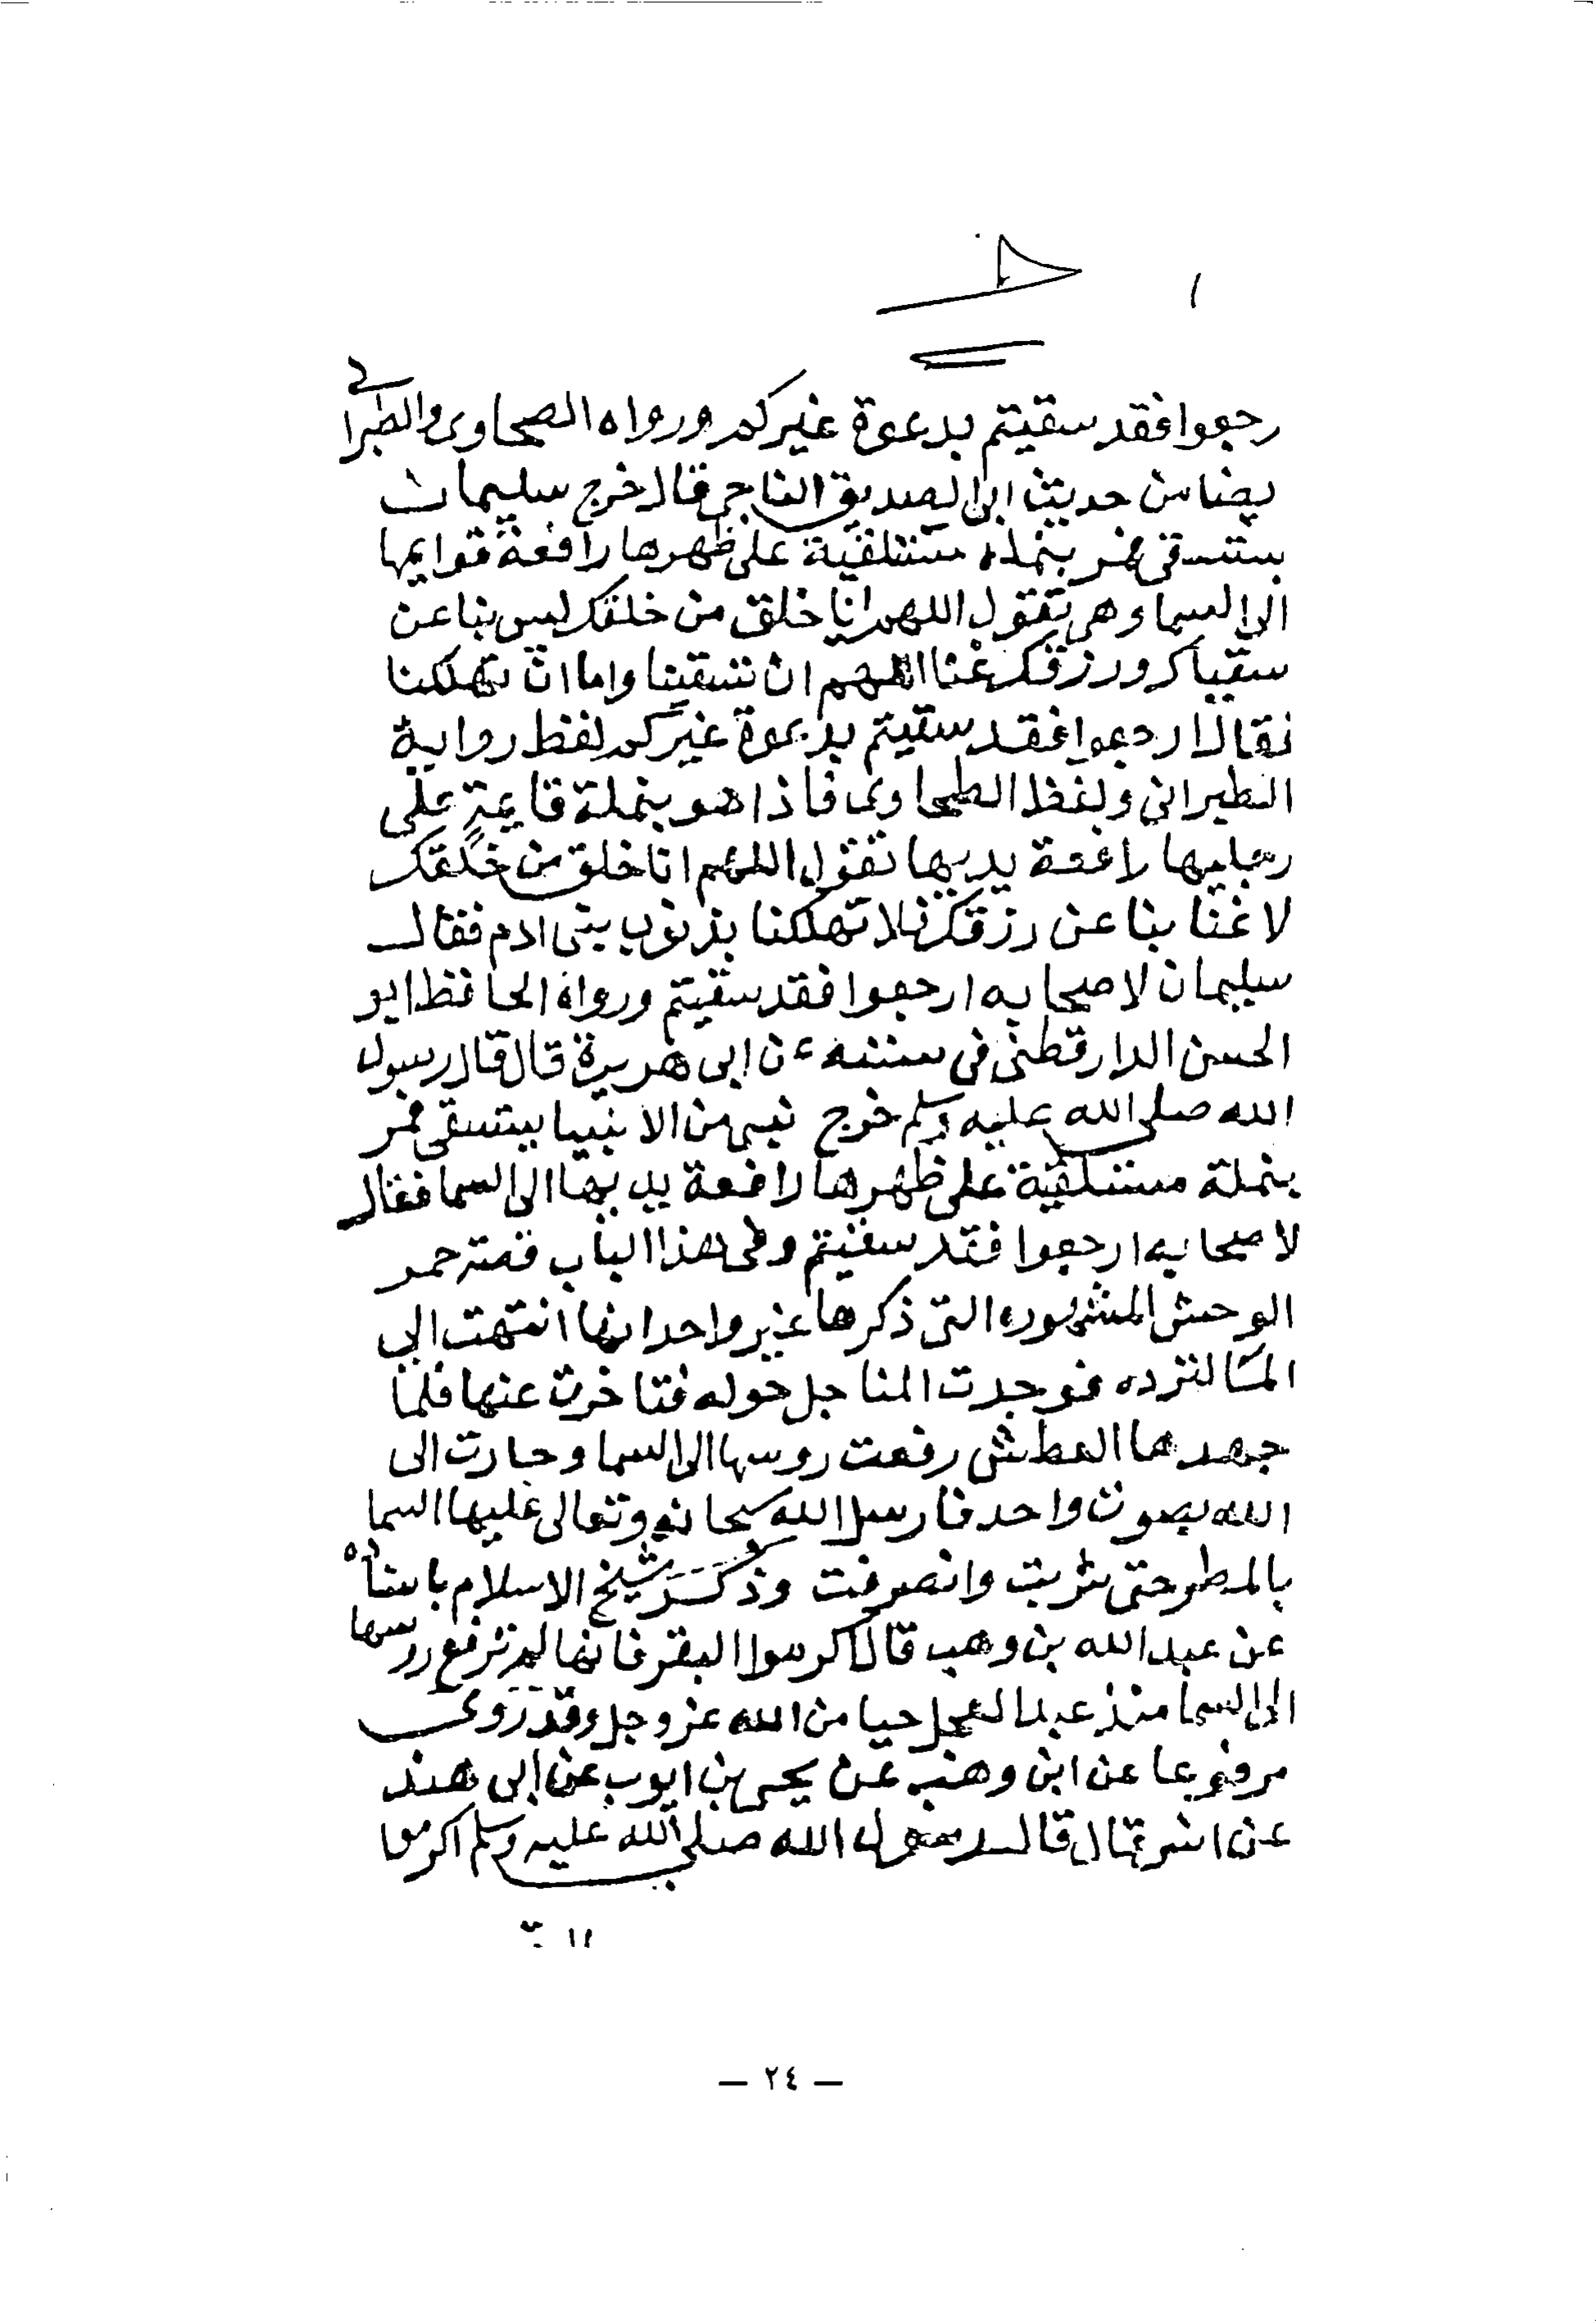 رجعوا فقد سقيتم بدعوة غيركم ورواه الصحاوى والطبرانى
يضا من حديث ابى الصديق الناجى قال خرج سليمان
يستسقى فمر بنمله مستلقية على ظهرها رافعة قوايمها
الى السما وهى تقول اللهم انا خلق من خلقك ليس بنا عن
سقياك ورزقك غنا اللهم ان تسقينا واما ان تهلكنا
فقال ارجعوا فقد سقيتم بدعوة غيركم لفظ رواية
الطبرانى ولفظ الطحاوى فاذا هو بنملة قايمة على
رجليها رافعة يديها تقول اللهم انا خلق من خلقك
لا غنا بنا عن رزقك فلا تهلكنا بذنوب بنى ادم فقال
سليمان لاصحابه ارجعوا فقد سقيتم ورواه الحافظ ابو
الحسن الدارقطنى فى سننه عن ابى هريرة قال قال رسول
الله صلى الله عليه وسلم خرج نبى من الانبيا يستسقى فمر
بنملة مستلقية على ظهرها رافعة يديها الى السما فقال
لاصحابه ارجعوا فقد سقيتم وفى هذا الباب قصة حمر
الوحش المشهوره التى ذكرها غير واحد انها انتهت الى
الما لترده فوجدت المناجل حوله فتاخرت عنها فلما
جهدها العطش رفعت روسها الى السما وجارت الى
الله بصوت واحد فارسل الله سبحانه وتعالى عليها السما
بالمطر حتى شربت وانصرفت وذكر شيخ الاسلام باسناده
عن عبد الله بن وهب قال اكرموا البقر فانها لم ترفع روسها
الى السما منذ عبد العجل حيا من الله عز وجل وقد روى
مرفوعا عن ابن وهب عن يحيى بن ايوب عن ابى هند
عن انس قال قال رسول الله صلى الله عليه وسلم اكرموا
— ٢٤ —